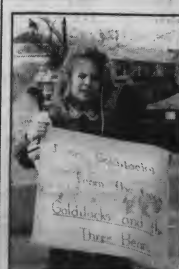 I am Goldilocks
from the
Goldilocks and the
Three Bears